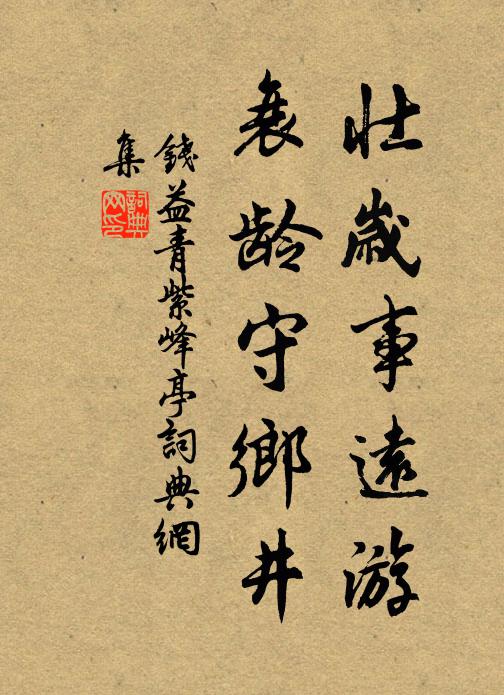 壮歲事遠游
衰齡守鄉井
錢益青紫峰亭詞典網
集
詞典網印